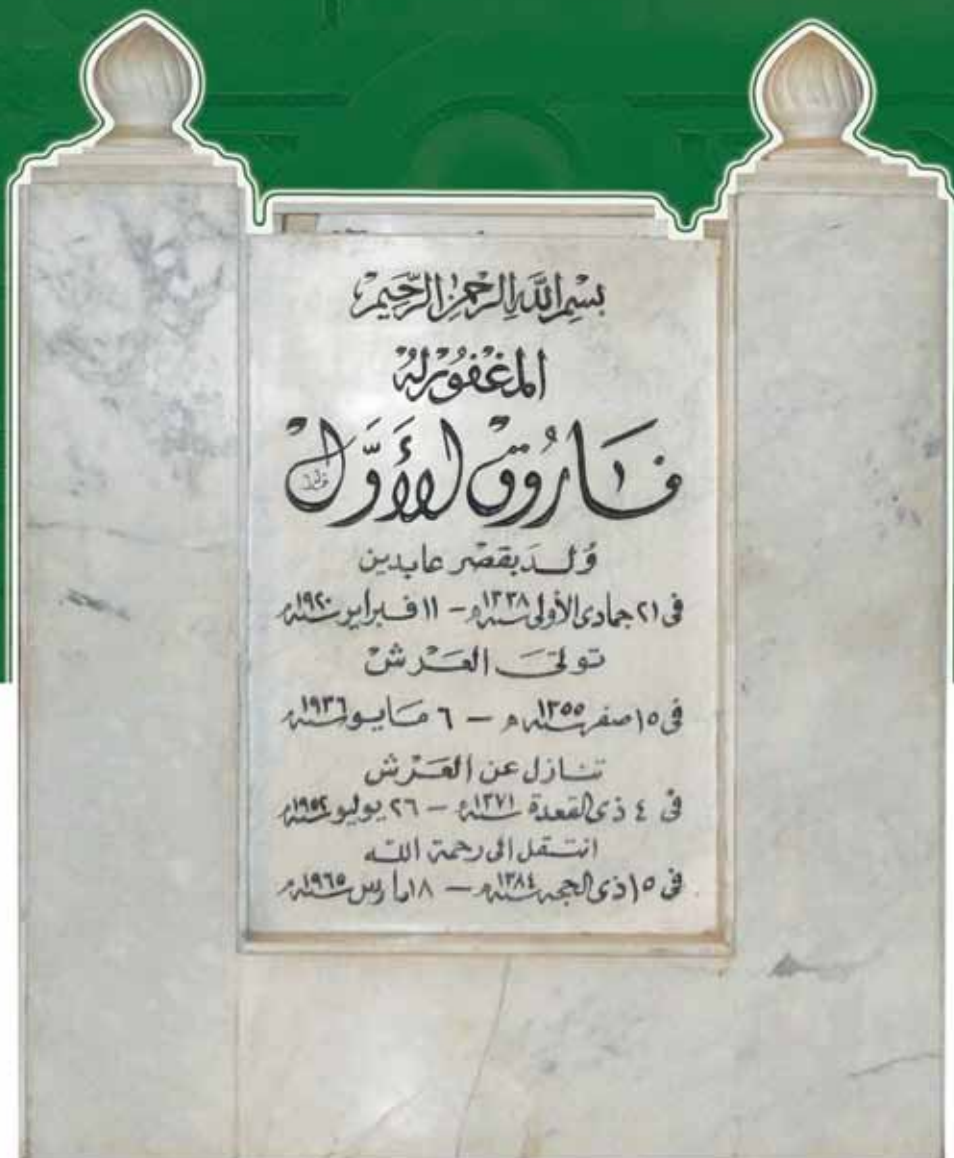 بسم الله الرحمن الرحيم
المغفور له
فاروق الأول
ولد بقصر عابدين
فى ٢١ جمادى الأولى سنة ١٣٣٨هـ - ١١ فبراير سنة ١٩٢٠م
تولى العرش
فى ١٥ صفر سنة ١٣٥٥هـ - ٦ مايو سنة ١٩٣٦م
تنازل عن العرش
فى ٤ ذى القعدة سنة ١٣٧١هـ - ٢٦ يوليو سنة ١٩٥٢م
انتقل الى رحمة الله
فى ١٥ ذى الحجه سنة ١٣٨٤هـ - ١٨ مارس سنة ١٩٦٥م